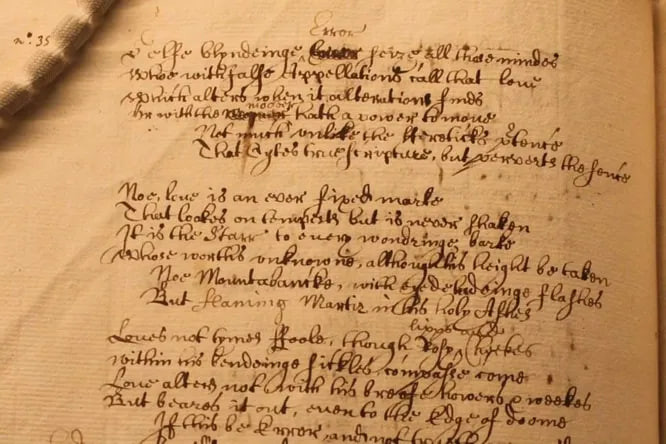 Error
n.º 35
Selfe blyndeinge seize all those mindes
Whoe with false Appellations call that Loue
Which alters when it alterations finds
moouer
Or with the hath a power to moue
Not much vnlike the Hereticks pretence
That Cytes true Scripture, but peruerts the sence
Noe, Loue is an euer fixed marke
That lookes on tempests but is neuer shaken
It is the Starr to euery wandringe barke
Whose worth's vnknowne, although his height be taken
Noe Mountabancke, with eye deludeinge flashes
But flameing Martir in his holy Ashes
lipps and
Loues not tymes Foole, though Rosy, Cheekes
Within his bendeinge sickles, compasse come
Loue alters not with his breife howers & weekes
But beares it out, euen to the Edge of doome
If this be Errer and not